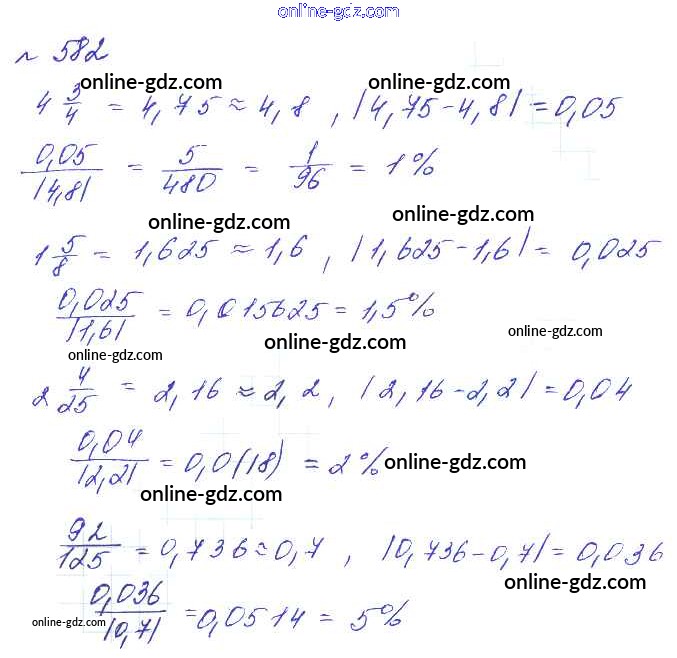 online-gdz.com
№ 582
online-gdz.com online-gdz.com
4 3/4 = 4,75 ≈ 4,8 , |4,75-4,8| = 0,05
0,05/|4,8| = 5/480 = 1/96 = 1%
online-gdz.com online-gdz.com
1 5/8 = 1,625 ≈ 1,6 , |1,625-1,6| = 0,025
0,025/|1,6| = 0,015625 = 1,5%
online-gdz.com online-gdz.com
online-gdz.com
2 4/25 = 2,16 ≈ 2,2 , |2,16-2,2| = 0,04
0,04/|2,2| = 0,0(18) = 2% online-gdz.com
online-gdz.com
92/125 = 0,736 ≈ 0,7 , |0,736-0,7| = 0,036
online-gdz.com
0,036/|0,7| = 0,0514 = 5%
online-gdz.com